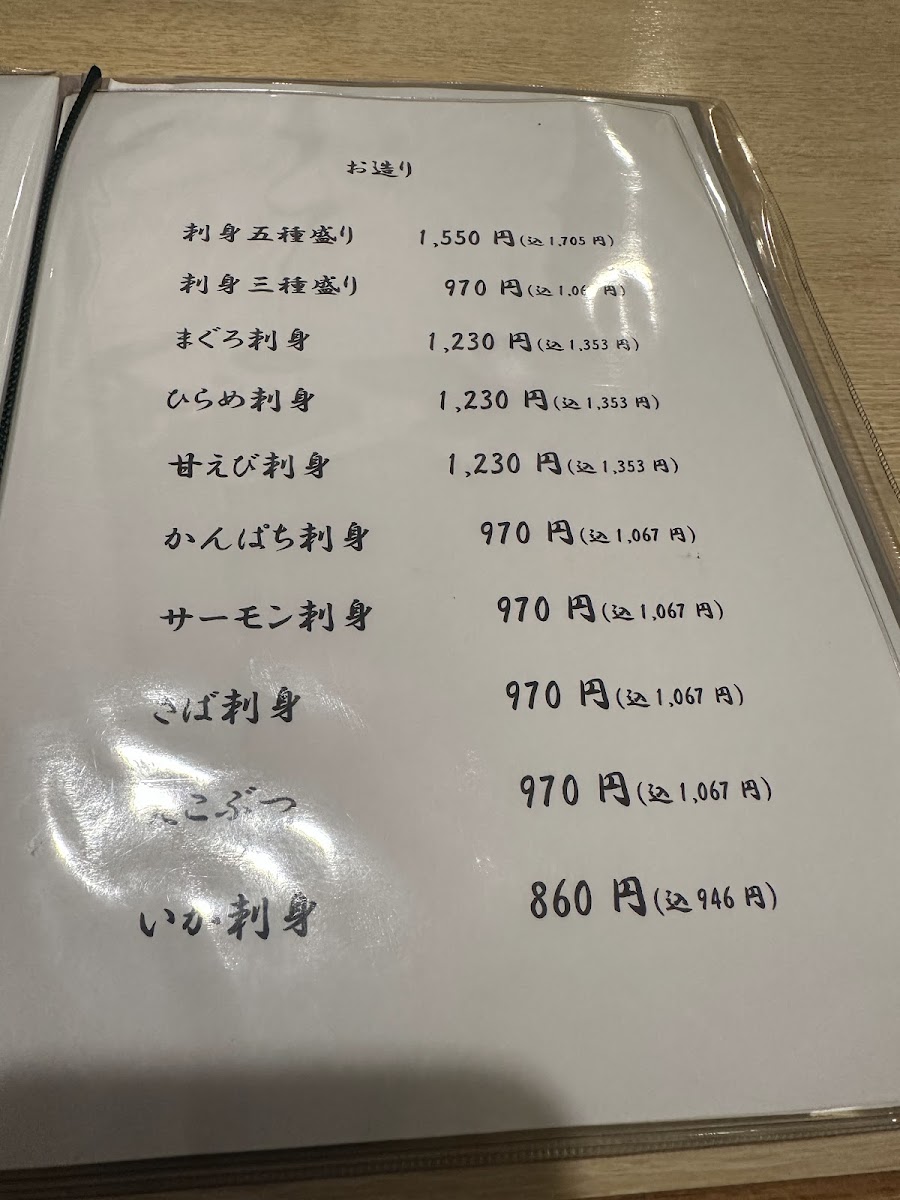 お造り
刺身五種盛り 1,550 円(込 1,705 円)
刺身三種盛り 970 円
まぐろ刺身 1,230 円(込 1,353 円)
ひらめ刺身 1,230 円(込 1,353 円)
甘えび刺身 1,230 円(込 1,353 円)
かんぱち刺身 970 円(込 1,067 円)
サーモン刺身 970 円(込 1,067 円)
さば刺身 970 円(込 1,067 円)
こぶつ 970 円(込 1,067 円)
いか刺身 860 円(込 946 円)